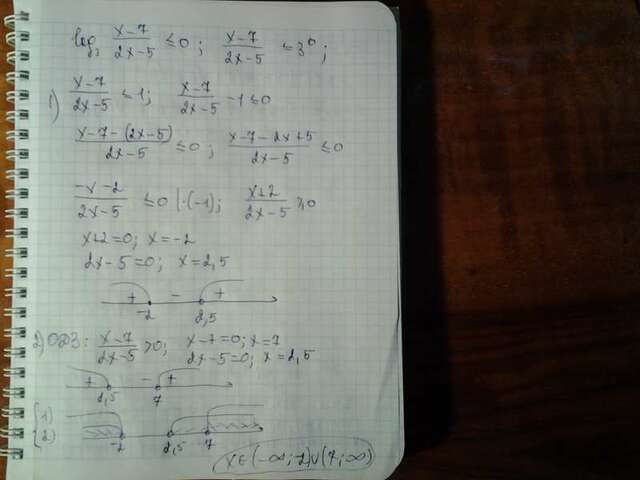 log₃ (x-7)/(2x-5) ≤ 0; (x-7)/(2x-5) ≤ 3⁰;
1) (x-7)/(2x-5) ≤ 1; (x-7)/(2x-5) - 1 ≤ 0
(x-7-(2x-5))/(2x-5) ≤ 0; (x-7-2x+5)/(2x-5) ≤ 0
(-x-2)/(2x-5) ≤ 0 |·(-1); (x+2)/(2x-5) ≥ 0
x+2=0; x=-2
2x-5=0; x=2,5
+ - +
-2 2,5
2) ОДЗ: (x-7)/(2x-5) > 0; x-7=0; x=7
2x-5=0; x=2,5
+ - +
2,5 7
{ 1)
2)
-2 2,5 7
x∈(-∞;-2]∪(7;∞)